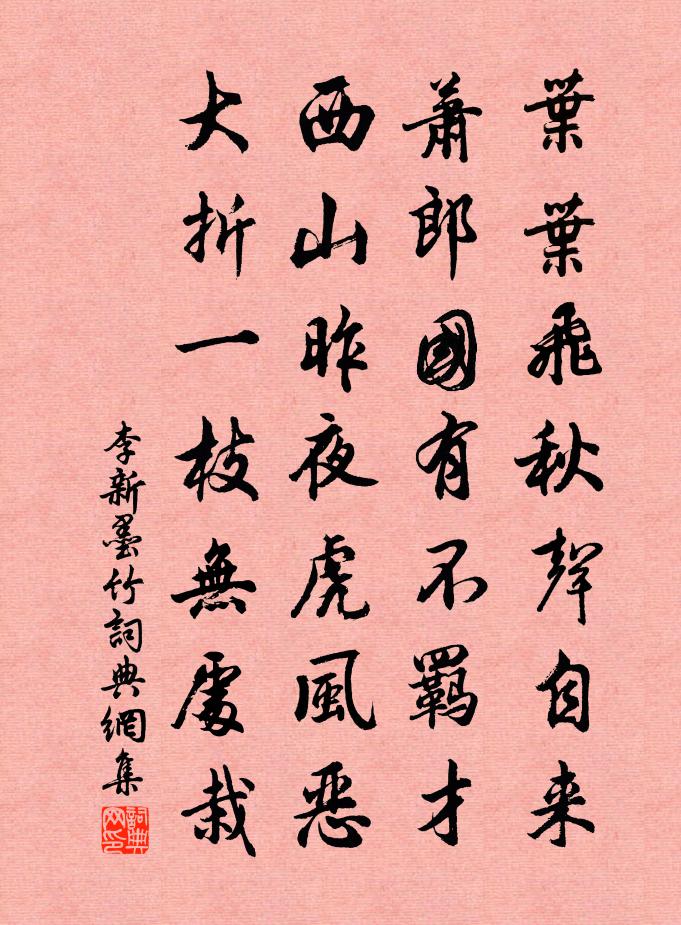 葉葉飛秋聲自来
蕭郎國有不羈才
西山昨夜虎風惡
大折一枝無處栽
李新墨竹詞典網集
詞典网印